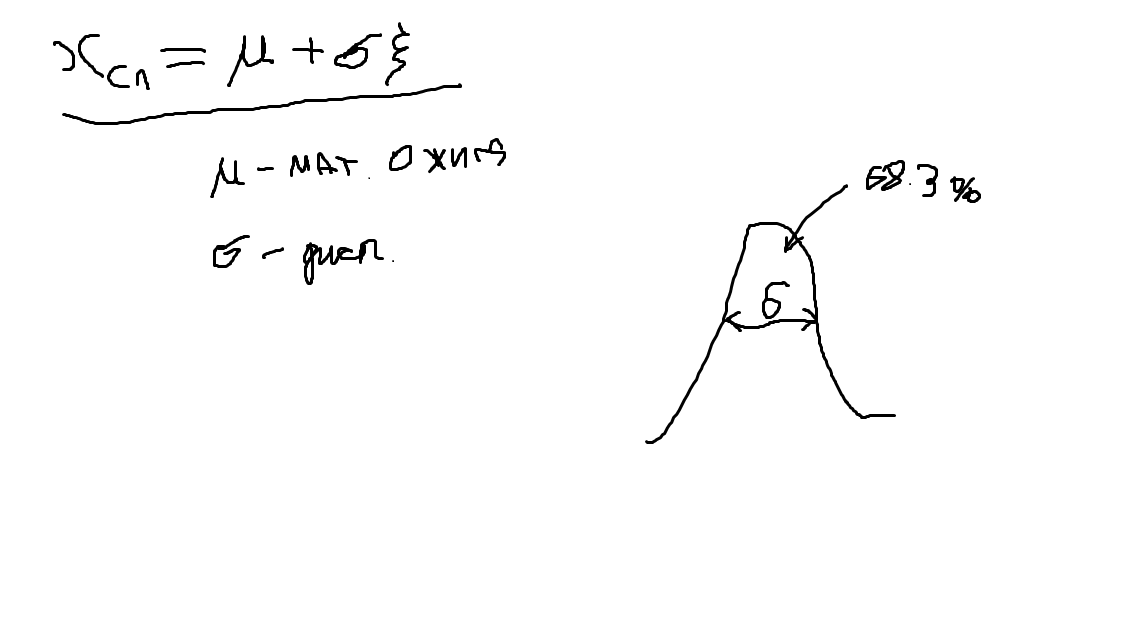 x_сл = μ + σξ
μ – мат. ожид
σ – дисп.
68.3 %
σ